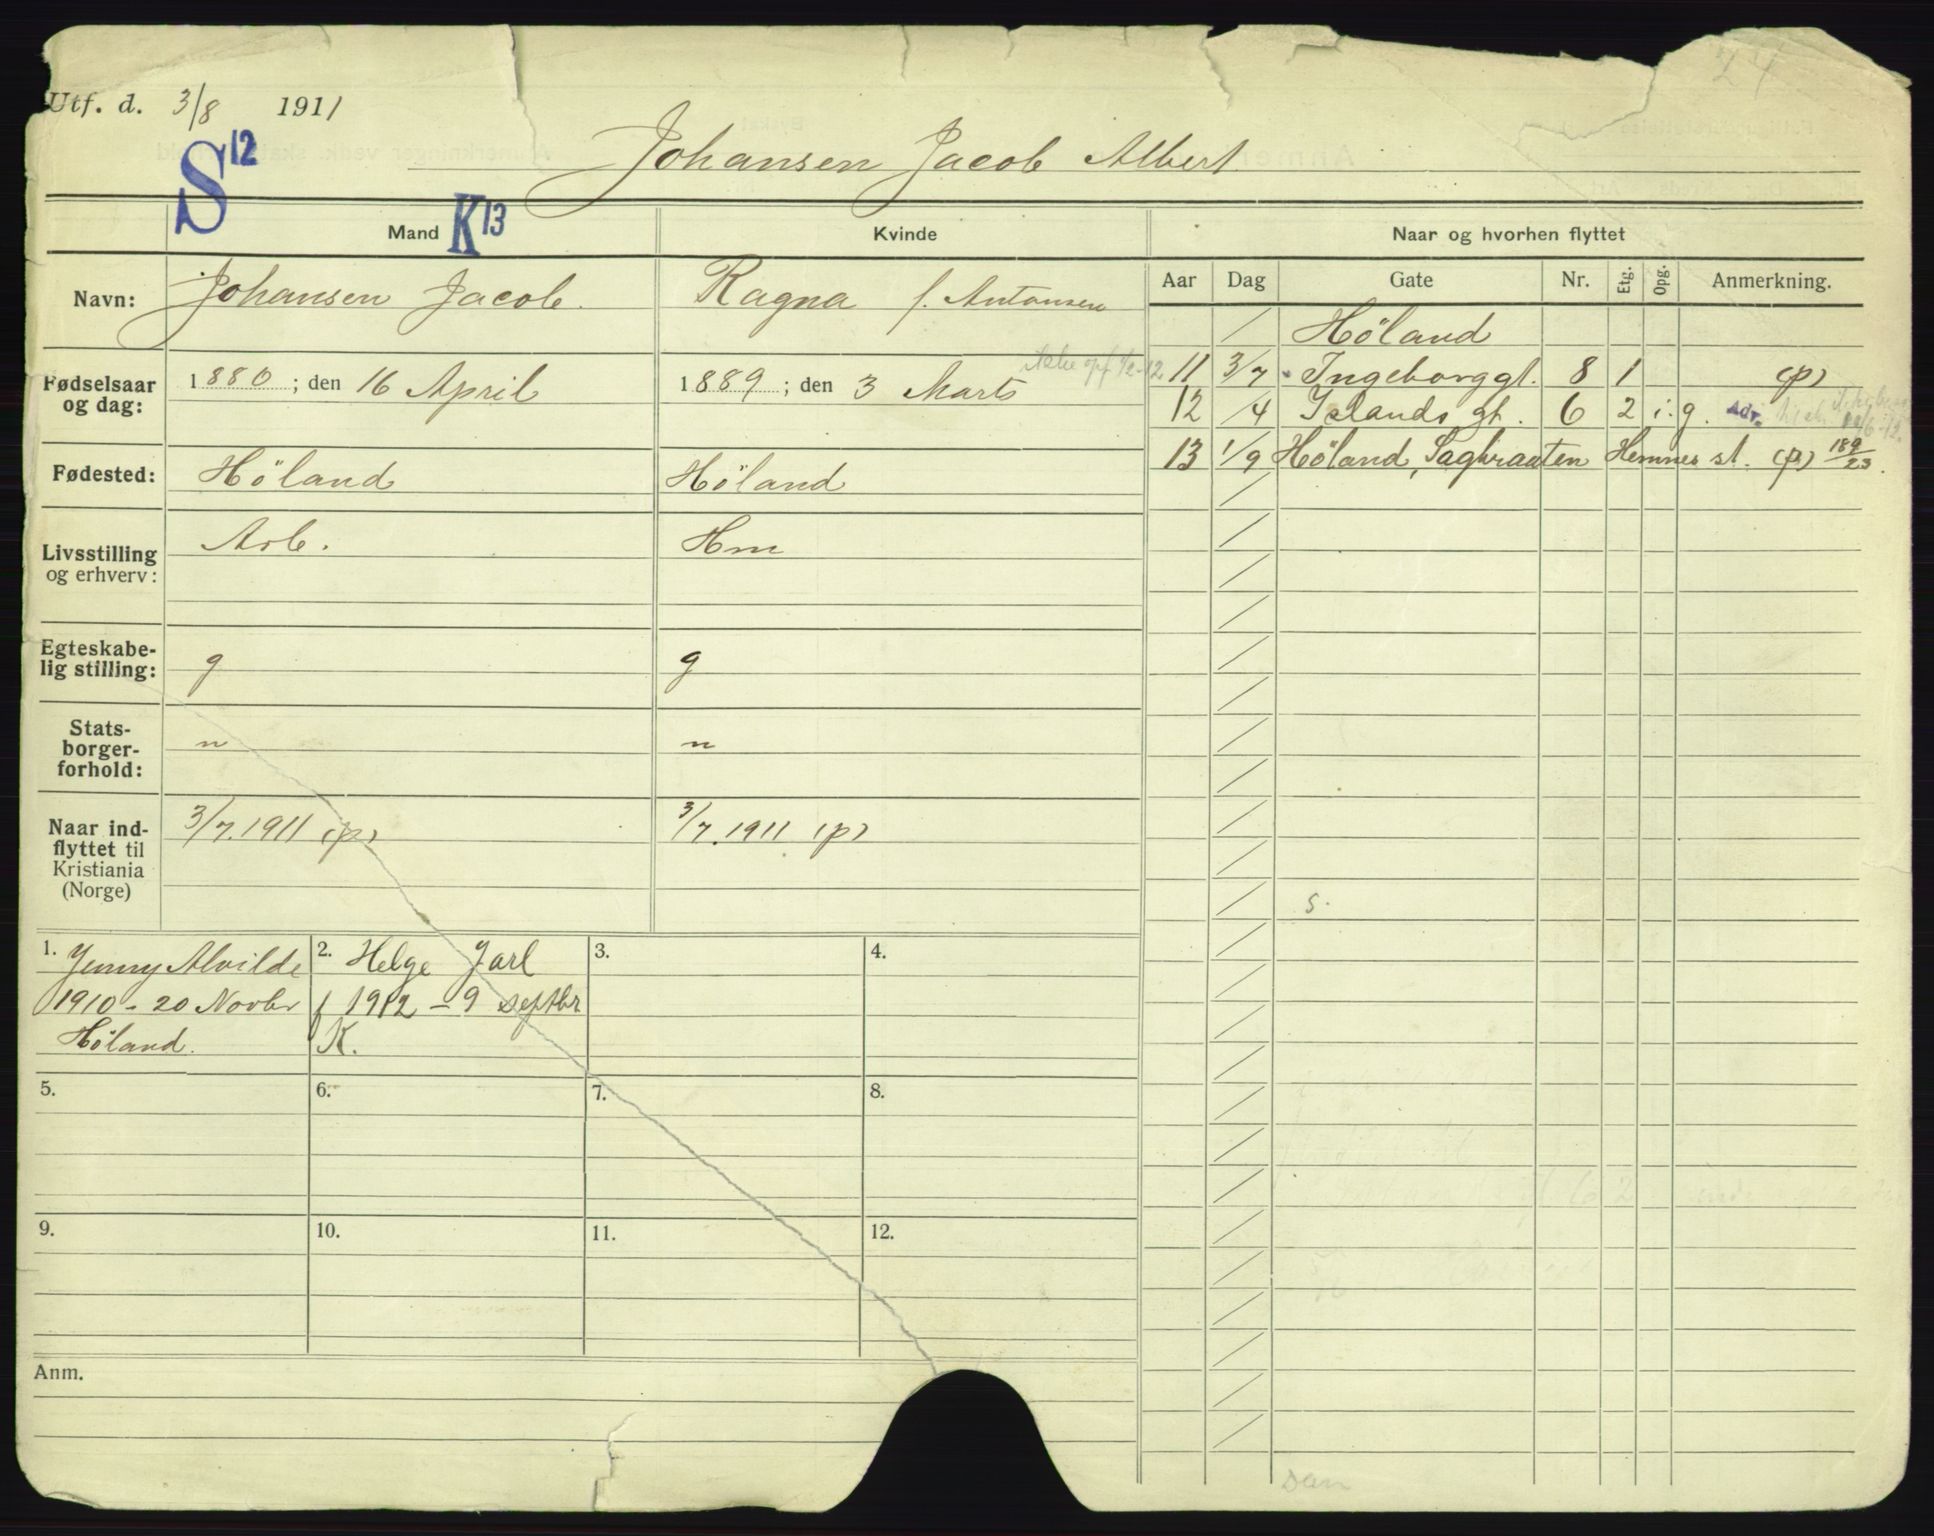 24
Utf. d. 3/8 1911
S12
Johansen Jacob Albert
Mand K13 Kvinde Naar og hvorhen flyttet
Aar Dag Gate Nr. Etg. Opg. Anmerkning.
Navn: Johansen Jacob. Ragna f. Antonsen
/ Høland
11 3/7 Ingeborggt. 8 1 (p)
Fødselsaar og dag: 1880; den 16 April 1889; den 3 Marts
12 /4 Islands gt. 6 2 i. g. Adr.
13 1/9 Høland, Sagbraaten Hemnes st. (p) 189/23.
Fødested: Høland Høland
Livsstilling og erhverv: Arb. Hm
Egteskabe-
lig stilling: g g
Stats-
borger-
forhold: n n
Naar ind-
flyttet til
Kristiania
(Norge) 3/7. 1911 (p) 3/7. 1911 (p)
s.
1. Jenny Alvilde
1910 - 20 Novbr
Høland.
2. Helge Jarl
f 1912 - 9 septbr
K.
3.
4.
5.
6.
7.
8.
9.
10.
11.
12.
Anm.